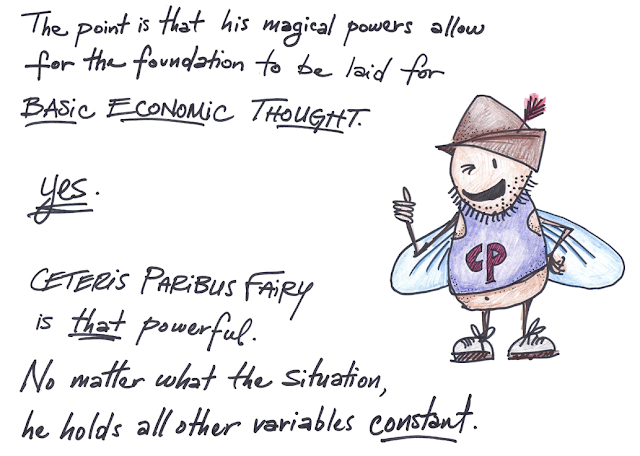 The point is that his magical powers allow
for the foundation to be laid for
BASIC ECONOMIC THOUGHT.
yes.
CETERIS PARIBUS FAIRY
is that powerful.
No matter what the situation,
he holds all other variables constant.
cp